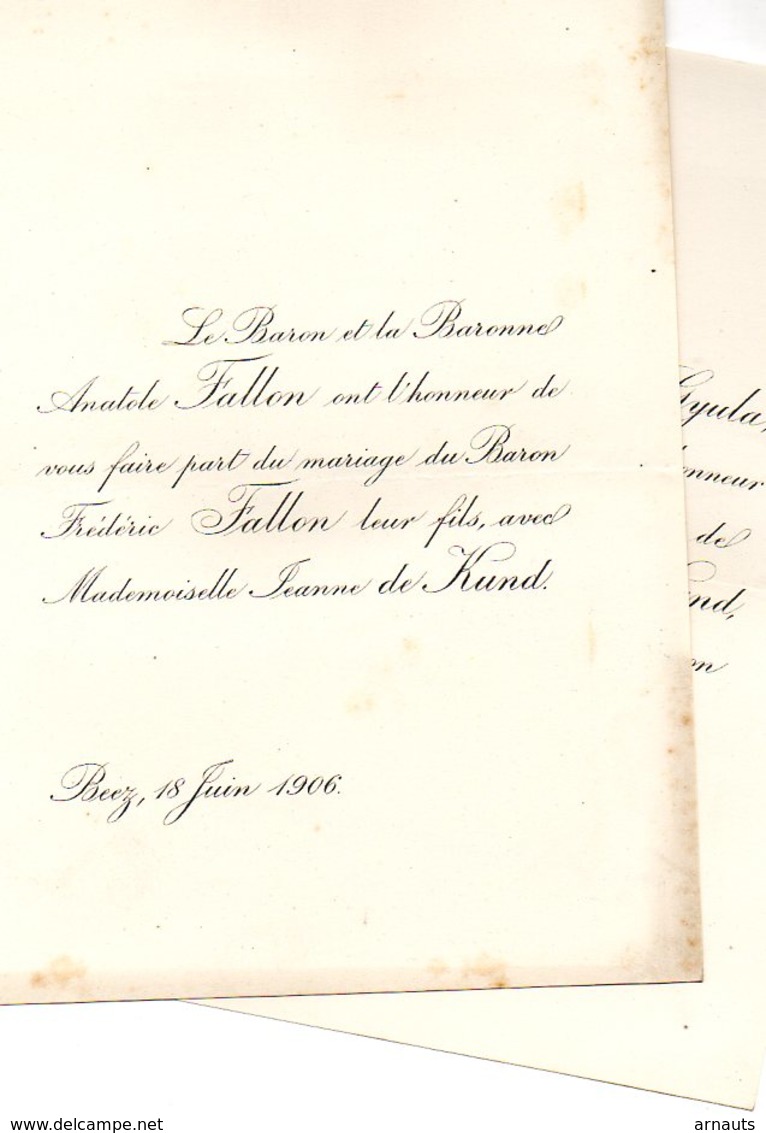 Le Baron et la Baronne
Anatole Fallon ont l'honneur de
vous faire part du mariage du Baron
Frédéric Fallon leur fils, avec
Mademoiselle Jeanne de Kund.
Beez, 18 Juin 1906.
Gyula,
onneur
de
und,
on
© www.delcampe.net
arnauts